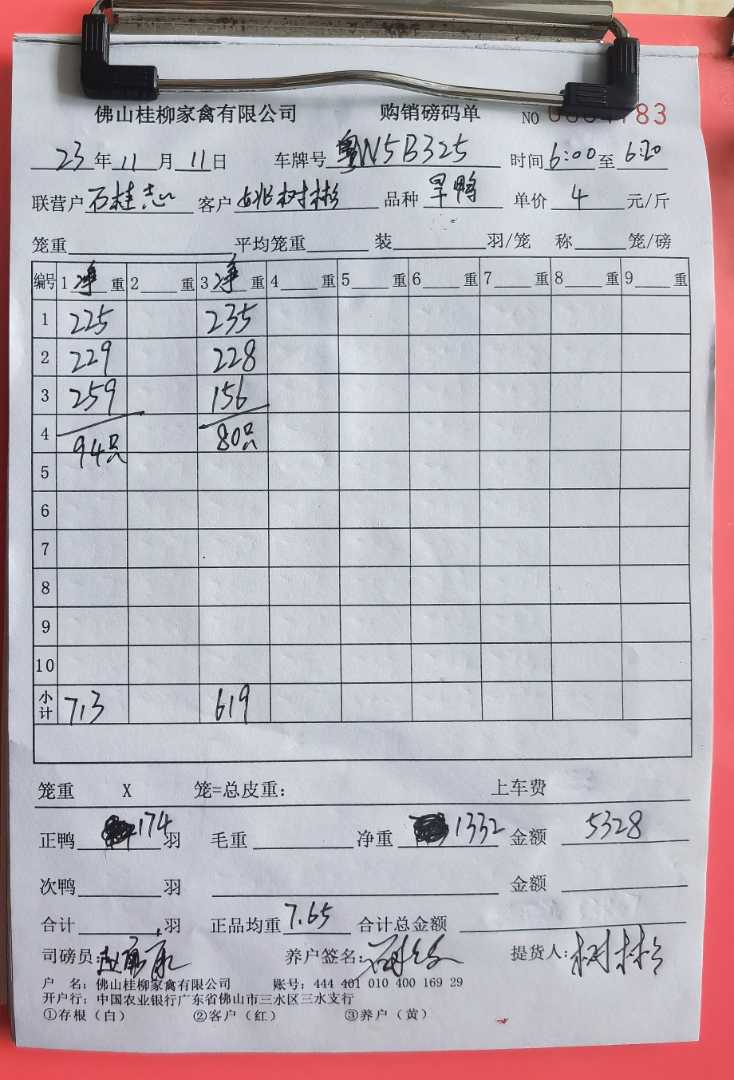 佛山桂柳家禽有限公司 购销磅码单 NO 783
23年11月11日 车牌号粤W5B325 时间6:00至6:20
联营户石桂志 客户姚树彬 品种旱鸭 单价4元/斤
笼重 平均笼重 装 羽/笼 称 笼/磅
编号 1净重 2 重 3净重 4 重 5 重 6 重 7 重 8 重 9 重
1 225 235
2 229 228
3 259 156
4 94只 80只
5
6
7
8
9
10
小计 713 619
笼重 X 笼=总皮重: 上车费
正鸭174羽 毛重 净重1332 金额5328
次鸭 羽 金额
合计 羽 正品均重7.65 合计总金额
司磅员: 养户签名: 提货人:树彬
户 名:佛山桂柳家禽有限公司 账号:444 401 010 400 169 29
开户行:中国农业银行广东省佛山市三水区三水支行
①存根(白) ②客户(红) ③养户(黄)